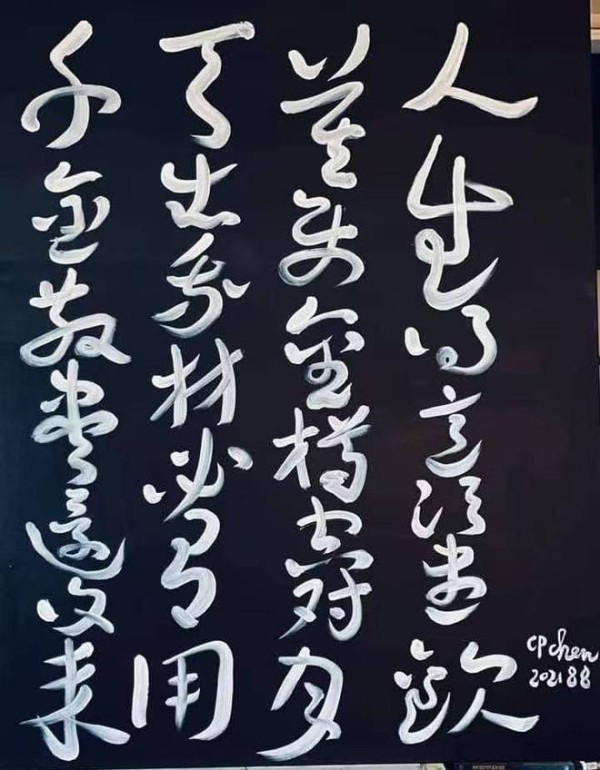 人生得意須盡歡
莫使金樽空對月
天生我材必有用
千金散盡還復来
CP chen
2021 8 8